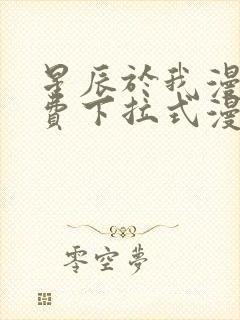 星辰於我漫
費下拉式漫
零空夢